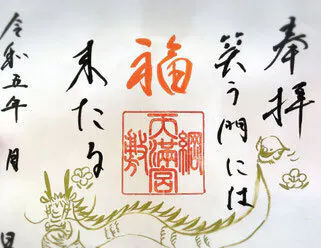 奉拝
笑う門には
福
来たる
綱敷天満宮
令和五年 月 日